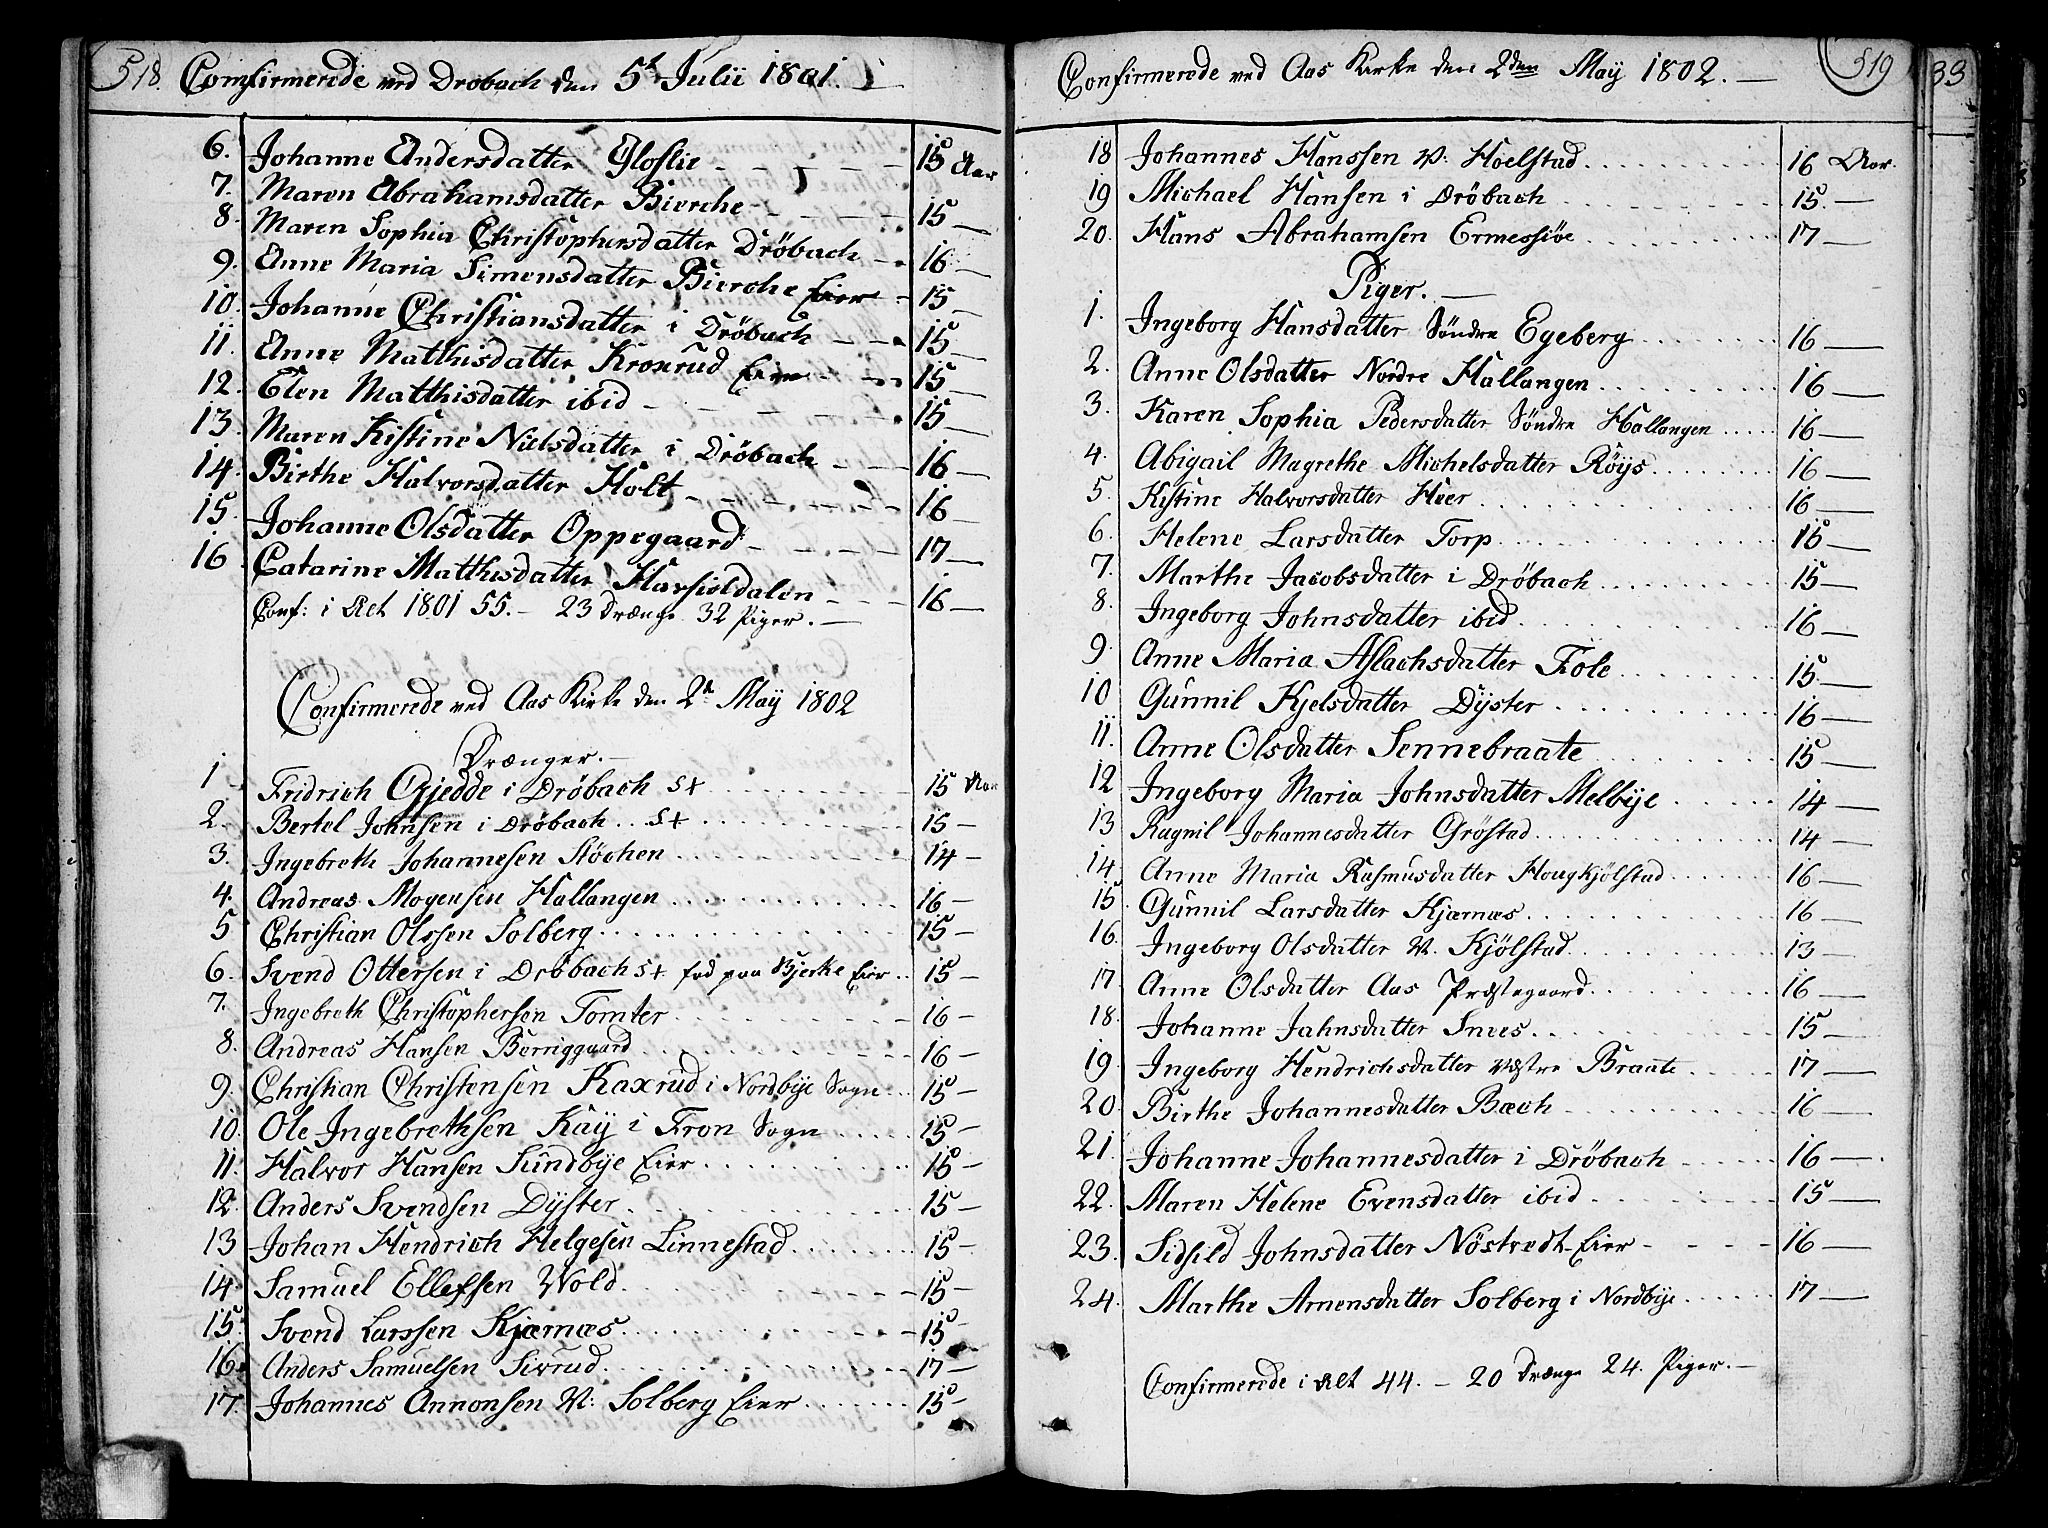 518. Comfirmerede ved Drobach den 5t Julii 1801.
6. Johanne Andersdatter Gloslie - - - - - 15 Aar
7. Maren Abrahamsdatter Bierche - - - - 15 —
8. Maren Sophia Christophersdatter Dröbach - - 16 —
9. Anne Maria Simensdatter Bierche Eier - 15 —
10. Johanne Christiansdatter i Dröbach - - 15 —
11. Anne Matthisdatter Kroxrud Eier - - 15 —
12. Elen Matthisdatter ibid - - - - - 15 —
13. Maren Kistine Nielsdatter i Dröbach - - - 16 —
14. Birthe Halvorsdatter Holt - - - - - 16 —
15. Johanne Olsdatter Oppegaard - - - - 17 —
16. Catarine Matthisdatter Harsioldalen - - - 16 —
Conf: i Alt 1801 55. — 23 Drænge 32 Piger. —
Confirmerede ved Aas Kirke den 2n May 1802
Drænger. —
1 Fridrich Gjedde i Dröbach S+ . . . . 15 Aar
2. Bertel Johnsen i Dröbach . . S+ . . . . 15 —
3. Ingebreth Johannesen Stöchen . . . . 14 —
4. Andreas Mogensen Hallangen . . . . 16 —
5 Christian Olssen Solberg . . . . 15 —
6. Svend Ottersen i Dröbach S+ fød paa Bjerke Eier . . 15 —
7. Ingebreth Christophersen Tomter . . . . 16 —
8. Andreas Hansen Berriggaard . . . . 16 —
9. Christian Christensen Kaxrud i Nordbÿe Sogn . . 15 —
10. Ole Ingebrethsen Kaÿ i Fron Sogn . . . . 15 —
11. Halvor Hansen Sundbÿe Eier . . . . 16 —
12. Anders Svendsen Dÿster . . . . 15 —
13 Johan Hendrich Helgesen Linnestad . . . . 15 —
14. Samuel Ellefsen Wold . . . . 15 —
15. Svend Larssen Kjærnæs . . . . 15 —
16. Anders Samuelsen Sivrud . . . . 17 —
17. Johannes Annonsen V: Solberg Eier . . . . 15 —
Confirmerede ved Aas Kirke den 2den Maÿ 1802. — 519
18 Johannes Hanssen V: Hoelstad . . . . 16 Aar.
19 Michael Hansen i Dröbach . . . . 15. —
20. Hans Abrahamsen Ermessiöe . . . . 17 —
Piger. —
1. Ingeborg Hansdatter Söndre Egeberg . . . . 16 —
2. Anne Olsdatter Nordre Hallangen . . . . 16 —
3. Karen Sophia Pedersdatter Söndre Hallangen . . . . 16 —
4. Abigail Magrethe Michelsdatter Röÿs . . . . 16 —
5. Kistine Halvorsdatter Heer . . . . 16 —
6. Helene Larsdatter Torp . . . . 15 —
7. Marthe Jacobsdatter i Dröbach . . . . 15 —
8. Ingeborg Johnsdatter ibid . . . . 16 —
9 Anne Maria Aslachsdatter Fole . . . . 15. —
10 Gunnil Kjelsdatter Dÿster . . . . 16 —
11. Anne Olsdatter Sennebraate . . . . 15 —
12 Ingeborg Maria Johnsdatter Melbÿe . . . . 14 —
13 Ragnil Johannesdatter Gröstad . . . . 14 —
14. Anne Maria Rasmusdatter Hougkjölstad . . . . 16 —
15. Gunnil Larsdatter Kjærnæs . . . . 16 —
16. Ingeborg Olsdatter V. Kjölstad . . . . 13 —
17. Anne Olsdatter Aas Præstegaard . . . . 16 —
18. Johanne Jahnsdatter Snees . . . . 15 —
19 Ingeborg Hendrichsdatter Vestre Braate . . . . 17 —
20 Birthe Johannesdatter Bæch . . . . 16 —
21. Johanne Johannesdatter i Dröbach . . . . 16 —
22. Maren Helene Evensdatter ibid . . . . 15 —
23. Sidsild Johnsdatter Nöstvedt Eier - - - - 16 —
24. Marthe Arnensdatter Solberg i Nordbÿe . . . . 17 —
Confirmerede i Alt 44. — 20 Drænge 24. Piger. —
33